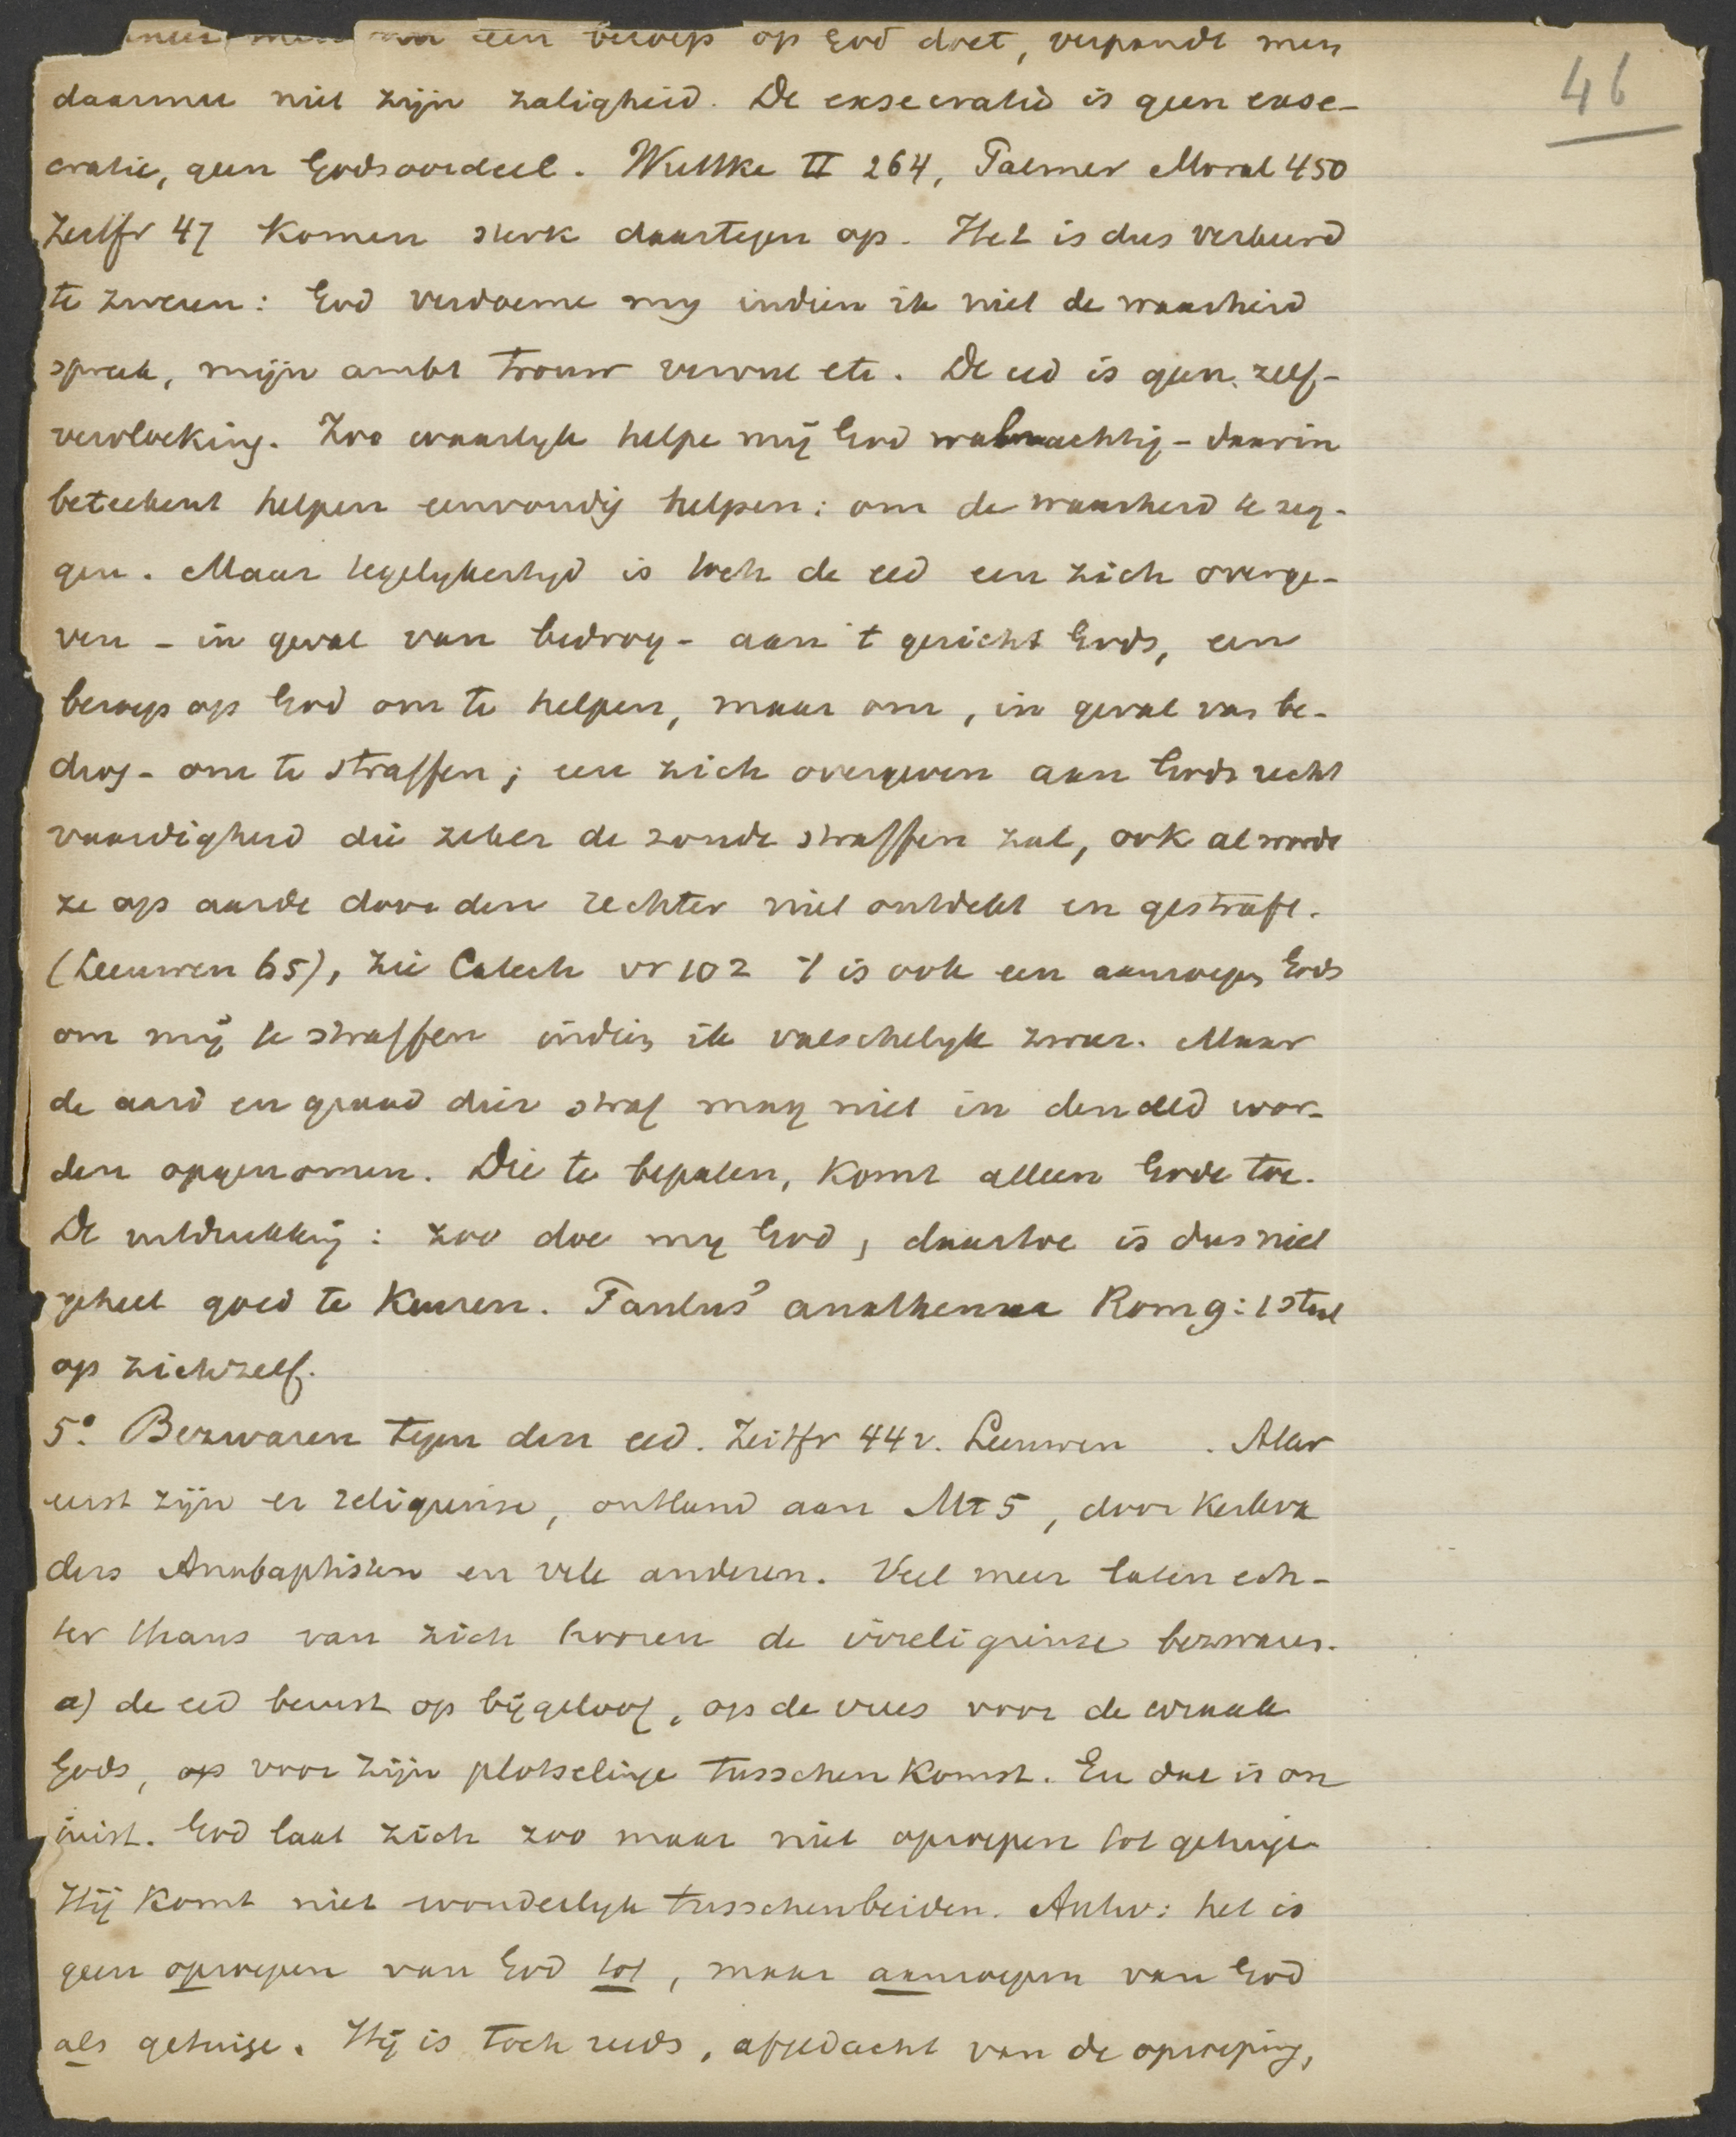 een beroep op God doet, verpandt men
46
daarmee niet zijn zaligheid. De exsecratie is geen exse-
cratie, geen Godsoordeel. Wuttke II 264, Palmer Moral 450
Zeitfr 47 komen sterk daartegen op. Het is dus verkeerd
te zweren: God verdoeme my indien ik niet de waarheid
spreek, mijn ambt trouw vervul etc. De eed is geen zelf-
vervloeking. Zoo waarlyk helpe mij God almachtig - daarin
beteekent helpen eenvoudig helpen: om de waarheid te zeg-
gen. Maar tegelykertyd is toch de eed een zich overge-
ven - in geval van bedrog - aan 't gericht Gods, een
beroep op God om te helpen, maar om, in geval van be-
drog - om te straffen; een zich overgeven aan Gods recht
vaardigheid die zeker de zonde straffen zal, ook al wordt
ze op aarde door den rechter niet ontdekt en gestraft.
(Leeuwen 65), zie Catech vr 102 't is ook een aanroepen Gods
om mij te straffen indien ik valschelyk zweer. Maar
de aard en graad dier straf mag niet in den eed wor-
den opgenomen. Die te bepalen, komt alleen Gode toe.
De uitdrukking: zoo doe my God, daartoe is dus niet
geheel goed te keuren. Paulus' anathema Rom 9:1 staat
op zichzelf.
5° Bezwaren tegen den eed. Zeitfr 44 v. Leeuwen . Aller
eerst zijn er religieuse, ontleend aan Mt 5, door Kerkva
ders Anabaptisten en vele anderen. Veel meer laten ech-
ter thans van zich hooren de irreligieuse bezwaren.
a) de eed berust op bijgeloof, op de vrees voor de wraak
Gods, op voor zijn plotselinge tusschenkomst. En dat is on
juist. God laat zich zoo maar niet oproepen tot getuige
Hij komt niet wonderlyk tusschenbeiden. Antw: het is
geen oproepen van God tot, maar aanroepen van God
als getuige. Hij is toch reeds, afgedacht van de oproeping,